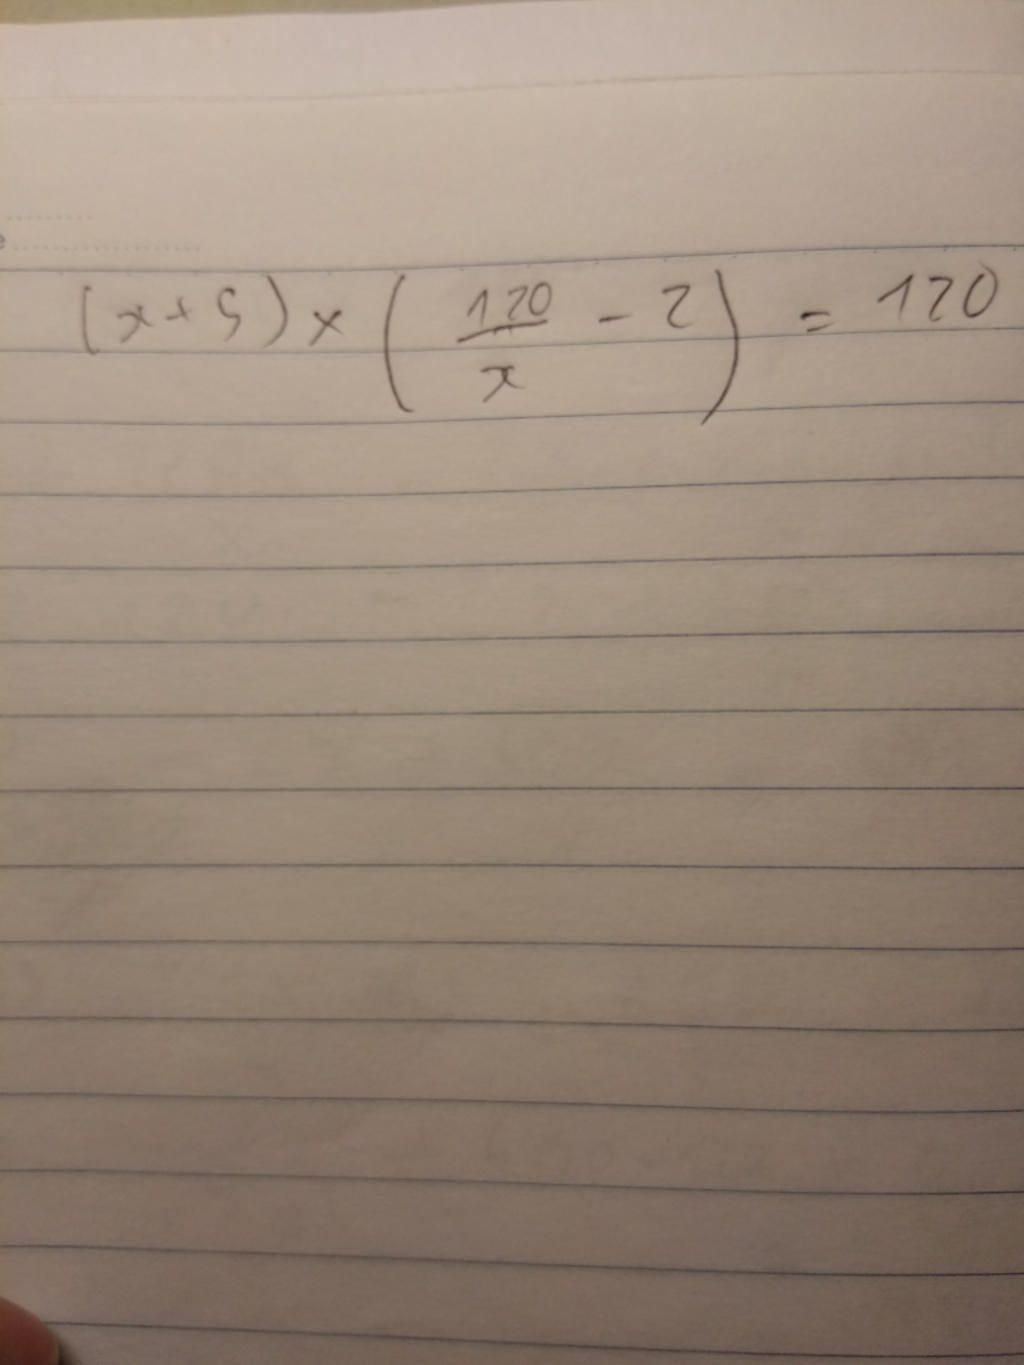 (x+5)×(120/x - 2) = 120